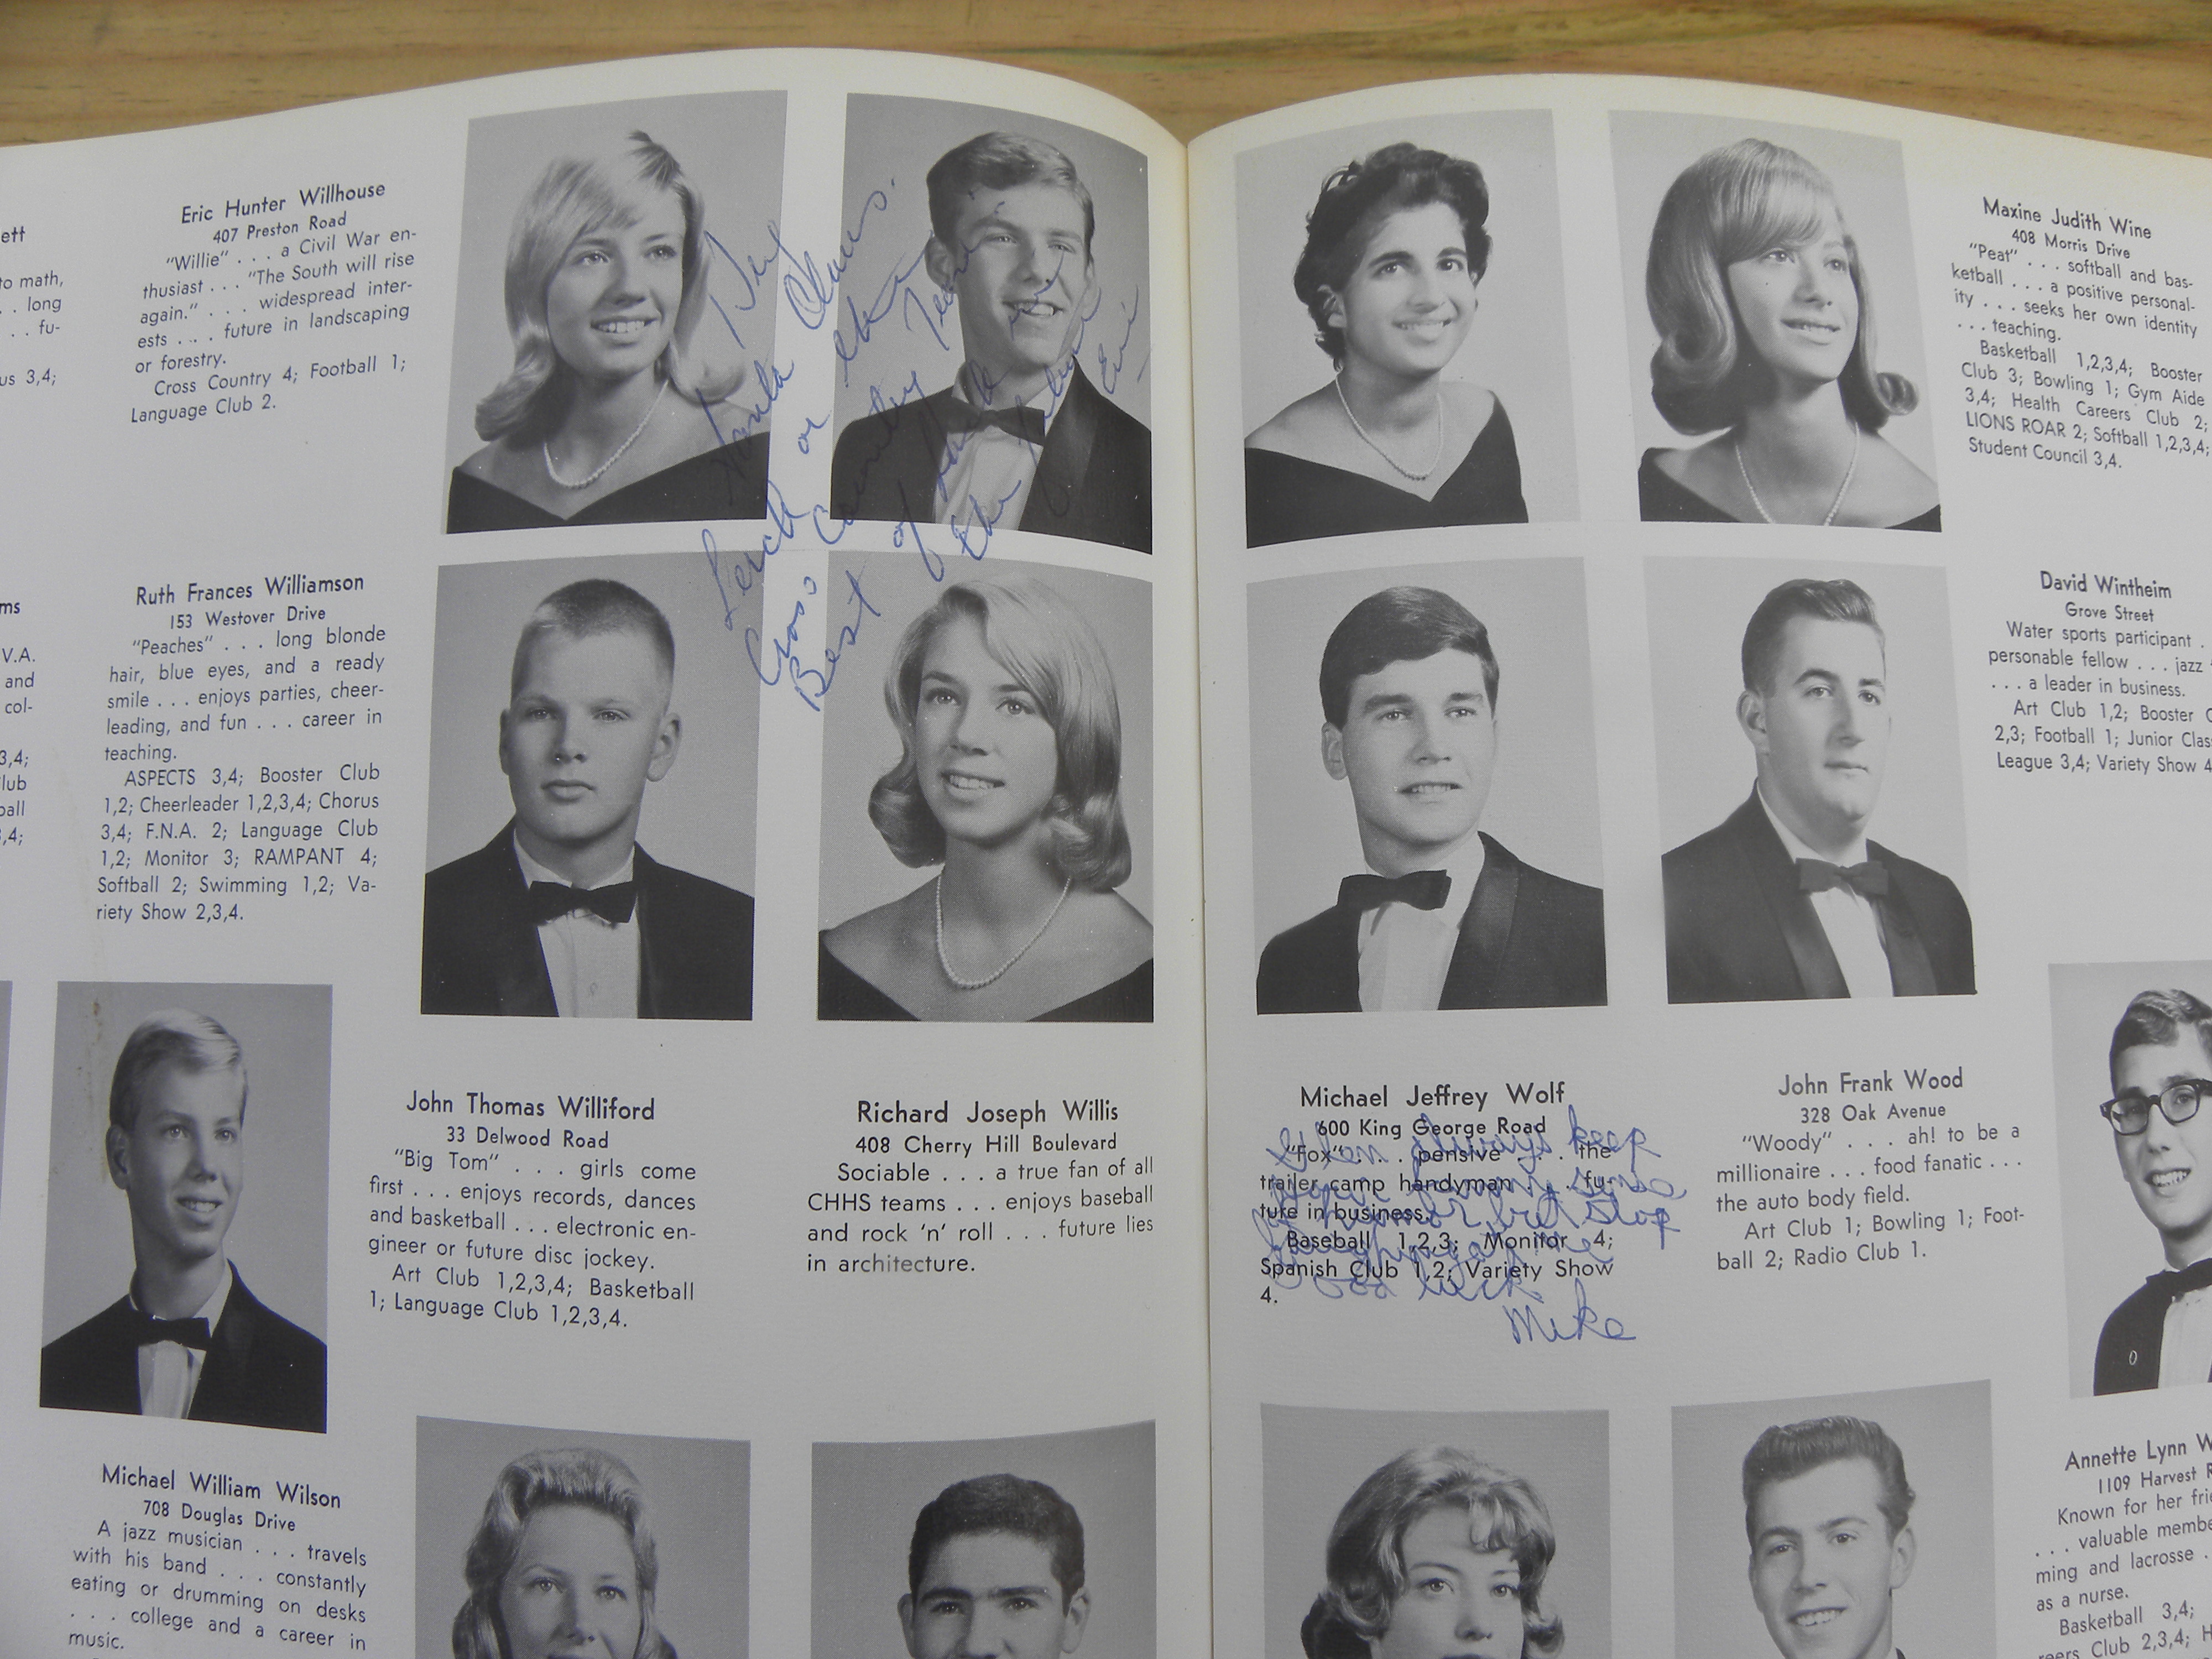 ett
to math,
. . long
. . fu-
us 3,4;
ms
V.A.
and
col-
3,4;
lub
ball
,4;
Eric Hunter Willhouse
407 Preston Road
"Willie" . . . a Civil War en-
thusiast . . . "The South will rise
again." . . . widespread inter-
ests . . . future in landscaping
or forestry.
Cross Country 4; Football 1;
Language Club 2.
Ruth Frances Williamson
153 Westover Drive
"Peaches" . . . long blonde
hair, blue eyes, and a ready
smile . . . enjoys parties, cheer-
leading, and fun . . . career in
teaching.
ASPECTS 3,4; Booster Club
1,2; Cheerleader 1,2,3,4; Chorus
3,4; F.N.A. 2; Language Club
1,2; Monitor 3; RAMPANT 4;
Softball 2; Swimming 1,2; Va-
riety Show 2,3,4.
Claus.
or
Cross Country Team
Best of luck in
the future
Eric
John Thomas Williford
33 Delwood Road
"Big Tom" . . . girls come
first . . . enjoys records, dances
and basketball . . . electronic en-
gineer or future disc jockey.
Art Club 1,2,3,4; Basketball
1; Language Club 1,2,3,4.
Richard Joseph Willis
408 Cherry Hill Boulevard
Sociable . . . a true fan of all
CHHS teams . . . enjoys baseball
and rock 'n' roll . . . future lies
in architecture.
Michael William Wilson
708 Douglas Drive
A jazz musician . . . travels
with his band . . . constantly
eating or drumming on desks
. . . college and a career in
music.
Maxine Judith Wine
408 Morris Drive
"Peat" . . . softball and bas-
ketball . . . a positive personal-
ity . . . seeks her own identity
. . . teaching.
Basketball 1,2,3,4; Booster
Club 3; Bowling 1; Gym Aide
3,4; Health Careers Club 2;
LIONS ROAR 2; Softball 1,2,3,4;
Student Council 3,4.
David Wintheim
Grove Street
Water sports participant .
personable fellow . . . jazz
. . . a leader in business.
Art Club 1,2; Booster C
2,3; Football 1; Junior Clas
League 3,4; Variety Show 4
Michael Jeffrey Wolf
600 King George Road
"Fox" . . . pensive . . . the
trailer camp handyman . . . fu-
ture in business.
Baseball 1,2,3; Monitor 4;
Spanish Club 1,2; Variety Show
4.
Glen always keep
your funny sense
of humor but stop
laughing at me
Good luck
Mike
John Frank Wood
328 Oak Avenue
"Woody" . . . ah! to be a
millionaire . . . food fanatic . . .
the auto body field.
Art Club 1; Bowling 1; Foot-
ball 2; Radio Club 1.
Annette Lynn W
1109 Harvest R
Known for her frie
. . . valuable membe
ming and lacrosse .
as a nurse.
Basketball 3,4;
reers Club 2,3,4; H